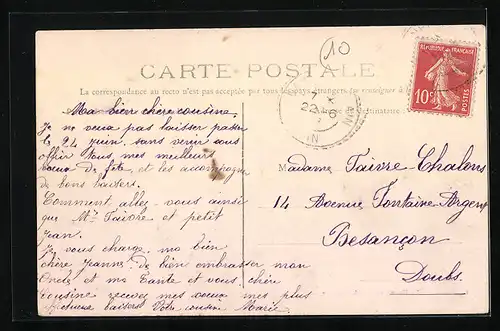 10
CARTE POSTALE
La correspondance au recto n'est pas acceptée par tous les pays étrangers (se renseigner à
RÉPUBLIQUE FRANÇAISE
10c
POSTES
7
22 - 6
Ma bien chère cousine,
Je ne veux pas laisser passer
le 24 juin, sans venir vous
offrir tous mes meilleurs
vœux de fête, et les accompagne
de bons baisers.
Comment allez vous ainsi
que Mr Faivre et petit
Jean.
Je vous charge, ma bien
chère Jeanne, de bien embrasser mon
Oncle et ma Tante et vous, chère
Cousine recevez mes vœux mes plus
affectueux baisers Votre cousine Marie
Madame Faivre-Chalons
14 Avenue Fontaine Argent
Besançon
Doubs.